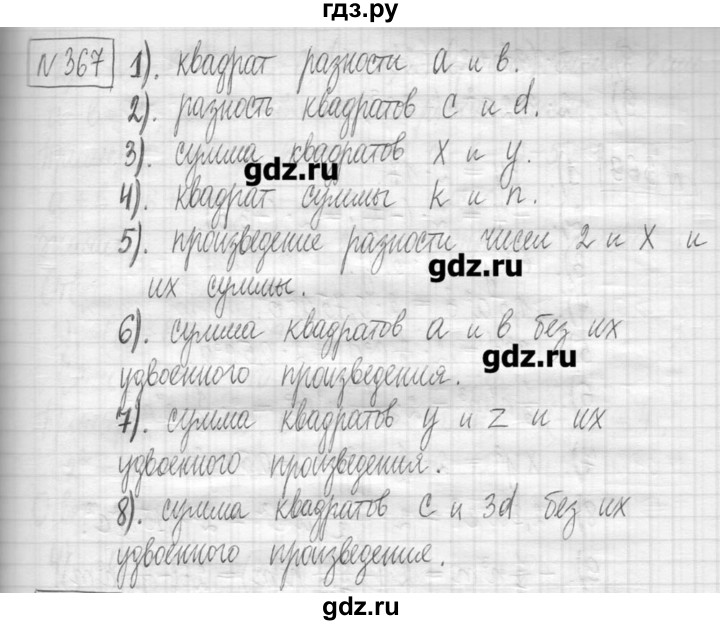 гдз.ру
№ 367 1). квадрат разности a и в.
2). разность квадратов c и d.
3). сумма квадратов x и y.
gdz.ru
4). квадрат суммы k и n.
5). произведение разности чисел 2 и x и
gdz.ru
их суммы.
6). сумма квадратов a и в без их
gdz.ru
удвоенного произведения.
7). сумма квадратов y и z и их
удвоенного произведения.
8). сумма квадратов c и 3d без их
удвоенного произведения.
gdz.ru